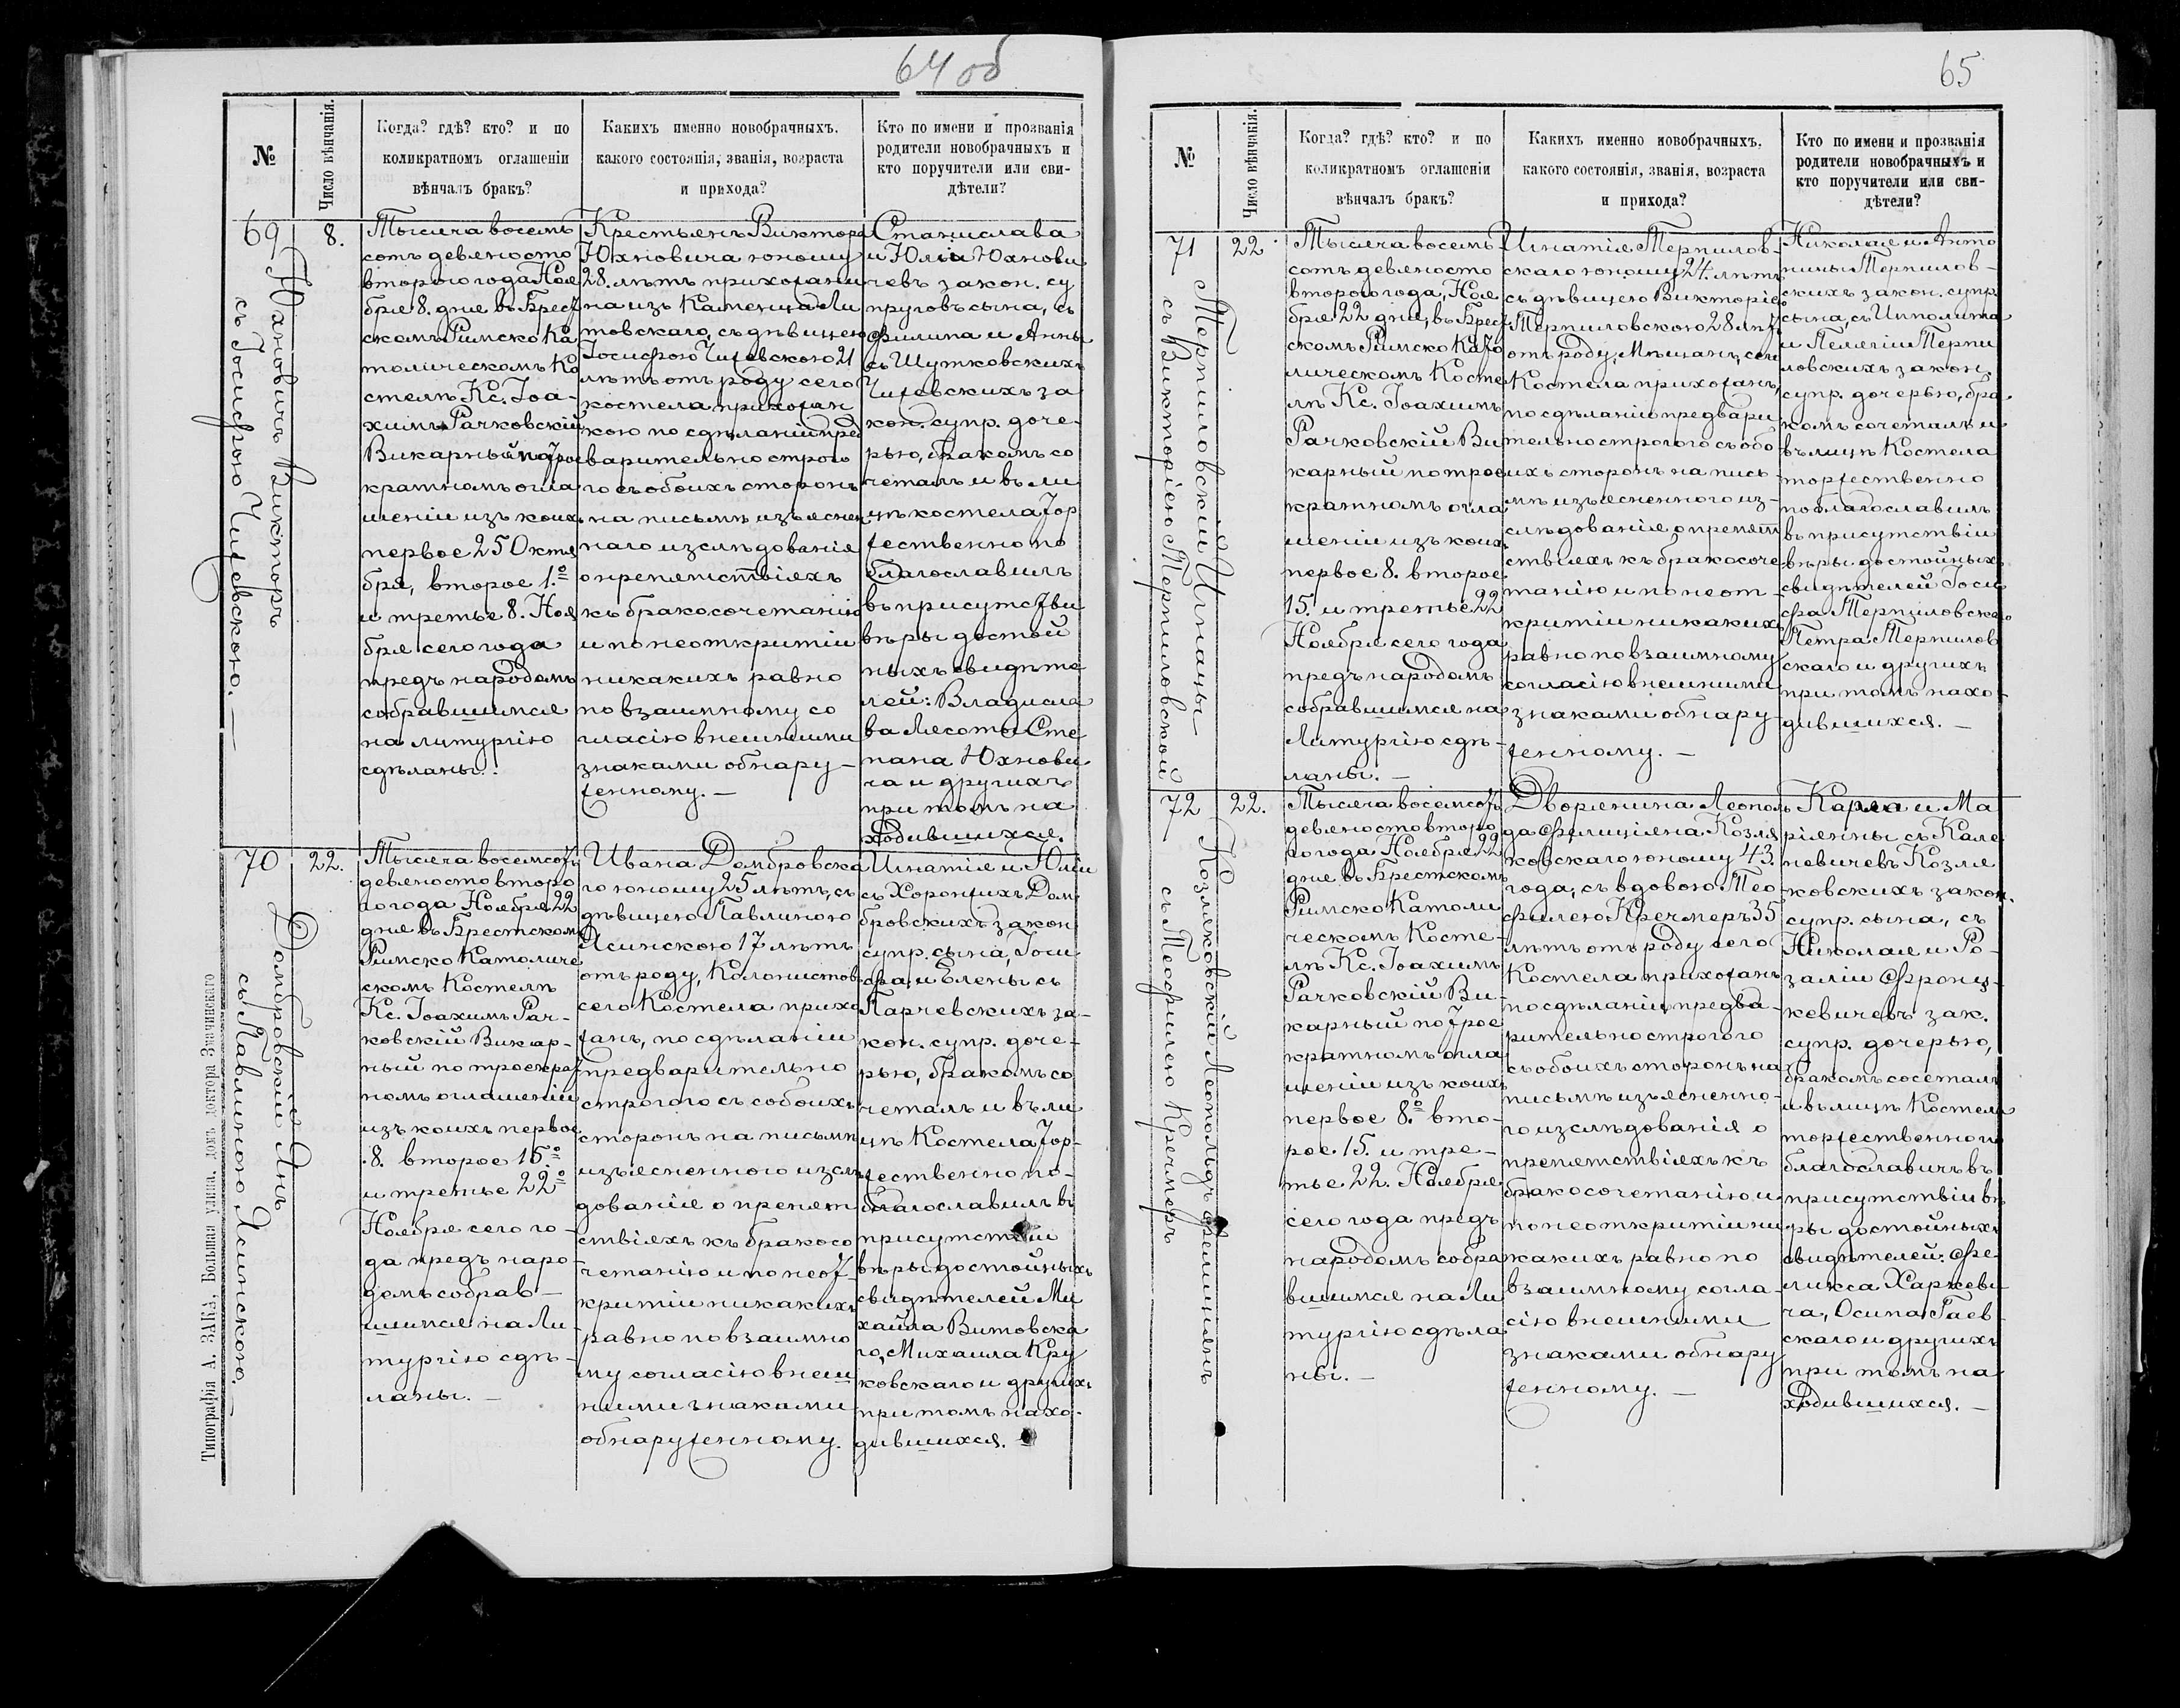 64 об
№
Число вѣнчанія.
Когда? гдѣ? кто? и по
коликратномъ оглашеніи
вѣнчалъ бракъ?
Какихъ именно новобрачныхъ,
какого состоянія, званія, возраста
и прихода?
Кто по имени и прозванія
родители новобрачныхъ и
кто поручители или сви-
дѣтели?
69
Юхновичъ Викторъ
съ Іосифою Чижевскою. —
8.
Тысяча восемь
сотъ девяносто
второго года Ноя
бря 8. дня въ Брест
скомъ Римско Ка
толическомъ Ко
стелѣ Кс. Іоа-
химъ Рачковскій
Викарный по трое
кратномъ огла
шеніи изъ коихъ
первое 25 Октя
бря, второе 1.о
и третье 8. Ноя
бря сего года
предъ народомъ
собравшимся
на литургію
сдѣланы.
Крестьянъ Виктора
Юхновича юношу
28. лѣтъ прихожани
на изъ Каменца Ли
товскаго, съ дѣвицею
Іосифою Чижевскою 21
лѣтъ отъ роду сего
костела прихожан
кою по сдѣланіи пред
варительно строго
го съ обоихъ сторонъ
на письмѣ изъяснен
наго изслѣдованія
о препятствіяхъ
къ бракосочетанію
и по неоткритіи
никакихъ равно
по взаимному со
гласію внешними
знаками обнару-
женному. —
Станислава
и Юліи Юхнови
чевъ закон. су
пруговъ сына, съ
Филипа и Анны
съ Шутковскихъ
Чижевскихъ за
кон. супр. доче-
рью, бракомъ со
четалъ и въ ли
цѣ костела тор
жественно по
благославилъ
въ присутстви
вѣры достой
ныхъ свидѣте
лей: Владисла
ва Лясоты Сте
пана Юхнови
ча и другихъ
при томъ на
ходившихся.
70
Домбровскій Янъ
съ Павлиною Ясинскою. —
22.
Тысяча восемсотъ
девяносто второ
го года Ноября 22
дня въ Брестскомъ
Римско Католиче
скомъ Костелѣ
Кс. Іоахимъ Рач-
ковскій Викар-
ный по троекрат
номъ оглашеніи
изъ коихъ первое
8. второе 15.о
и третье 22о
Ноября сего го-
да предъ наро-
домъ собрав-
шимся на Ли-
тургію сдѣ-
ланы. —
Ивана Домбровска
го юношу 25 лѣтъ, съ
дѣвицею Павлиною
Ясинскою 17 лѣтъ
отъ роду, Колонистов
сего Костела прихо
жанъ, по сдѣланіи
предварительно
строгого съ собоихъ
сторонъ на письмѣ
изъясненного изслѣ
дованія о препят
ствіяхъ къ бракосо
четанію и по неот-
критіи никакихъ
равно по взаимно
му согласію внеш
ними знаками
обнаруженному.
Игнатія и Юліи
съ Хоронжихъ Дом
бровскихъ закон
супр. сына, Іоси
фа, и Елены съ
Парчевскихъ за-
кон. супр. доче-
рью, бракомъ со
четалъ и въ ли
цѣ Костела тор-
жественно по-
благославилъ въ
присутствіи
вѣры достойныхъ
свидѣтелей Ми
хайла Витовска
го, Михаила Кру
ковскаго и другихъ
при томъ нахо-
дившихся.
Типографія А. ЗАКА, Большая улица, домъ доктора Значинскаго
65
№
Число вѣнчанія.
Когда? гдѣ? кто? и по
коликратномъ оглашеніи
вѣнчалъ бракъ?
Какихъ именно новобрачныхъ,
какого состоянія, званія, возраста
и прихода?
Кто по имени и прозванія
родители новобрачныхъ и
кто поручители или сви-
дѣтели?
71
Терпиловскій Игнацы —
съ Викторіею Терпиловской
22.
Тысяча восемь
сотъ девяносто
второго года, Ноя
бря 22 дня, въ Брест
скомъ Римско Като
лическомъ Косте
лѣ Кс. Іоахимъ
Рачковскій Ви
карный по трое
кратномъ огла
шеніи изъ коихъ
первое 8. второе
15. и третье 22
Ноября сего года
предъ народомъ
собравшимся на
Литургію сдѣ-
ланы. —
Игнатія Терпилов-
скаго юношу 24. лѣтъ
съ дѣвицею Викторіею
Терпиловскою 28 лѣтъ
отъ роду, Мѣщанъ, сего
Костела прихожанъ,
по сдѣланію предвари
тельно строгого съ обо
ихъ сторонъ на пись
мѣ изъясненного из-
слѣдованія о препят
ствіяхъ къ бракосоче
танію и по неот-
критіи никакихъ
равно по взаимному
согласію внешними
знаками обнару-
женному. —
Николая и Анто
нины Терпилов-
скихъ закон. супр.
сына, съ Ипполита
и Пелягіи Терпи
ловскихъ закон.
супр. дочерью, бра-
комъ сочеталъ и
въ лицѣ Костела
торжественно
поблагославилъ
въ присутствіи
вѣры достойныхъ
свидѣтелей Іоси
фа Терпиловскаго
Петра Терпилов
скаго и другихъ
при томъ нахо-
дившихся. —
72
Козляковскій Леопольдъ Фелиціянъ
съ Теофилею Кречмеръ
22.
Тысяча восемсотъ
девяносто второ
го года Ноября 22
дня въ Брестскомъ
Римско Католи
ческомъ Косте-
лѣ Кс. Іоахимъ
Рачковскій Ви-
карный по трое
кратномъ огла
шеніи изъ коихъ
первое 8.о вто-
рое 15. и тре-
тье 22. Ноября
сего года предъ
народомъ собра
вшимся на Ли
тургію сдѣла
ны. —
Дворянина Леополь
да Фелиціяна Козля
ковскаго юношу 43.
года, съ вдовою Тео
филею Кречмеръ 35
лѣтъ отъ роду сего
Костела прихожанъ
по сдѣланіи предва-
рительно строгого
съ обоихъ сторонъ на
письмѣ изъясненно-
го изслѣдованія о
препятствіяхъ къ
бракосочетанію и
по неоткритіи ни
какихъ равно по
взаимному согла-
сію внешними
знаками обнару
женному. —
Карла и Ма
ріянны съ Кале
невичевъ Козля
ковскихъ закон.
супр. сына, съ
Николая и Ро-
заліи Фронц-
кевичевъ зак.
супр. дочерью,
бракомъ сосеталъ
и въ лицѣ Костела
торжественно по
благославичъ въ
присутствіи вѣ
ры достойныхъ
свидѣтелей: Фе-
ликса Харжеви-
ча, Осипа Гаев-
скаго и другихъ
при томъ на
ходившихся. —